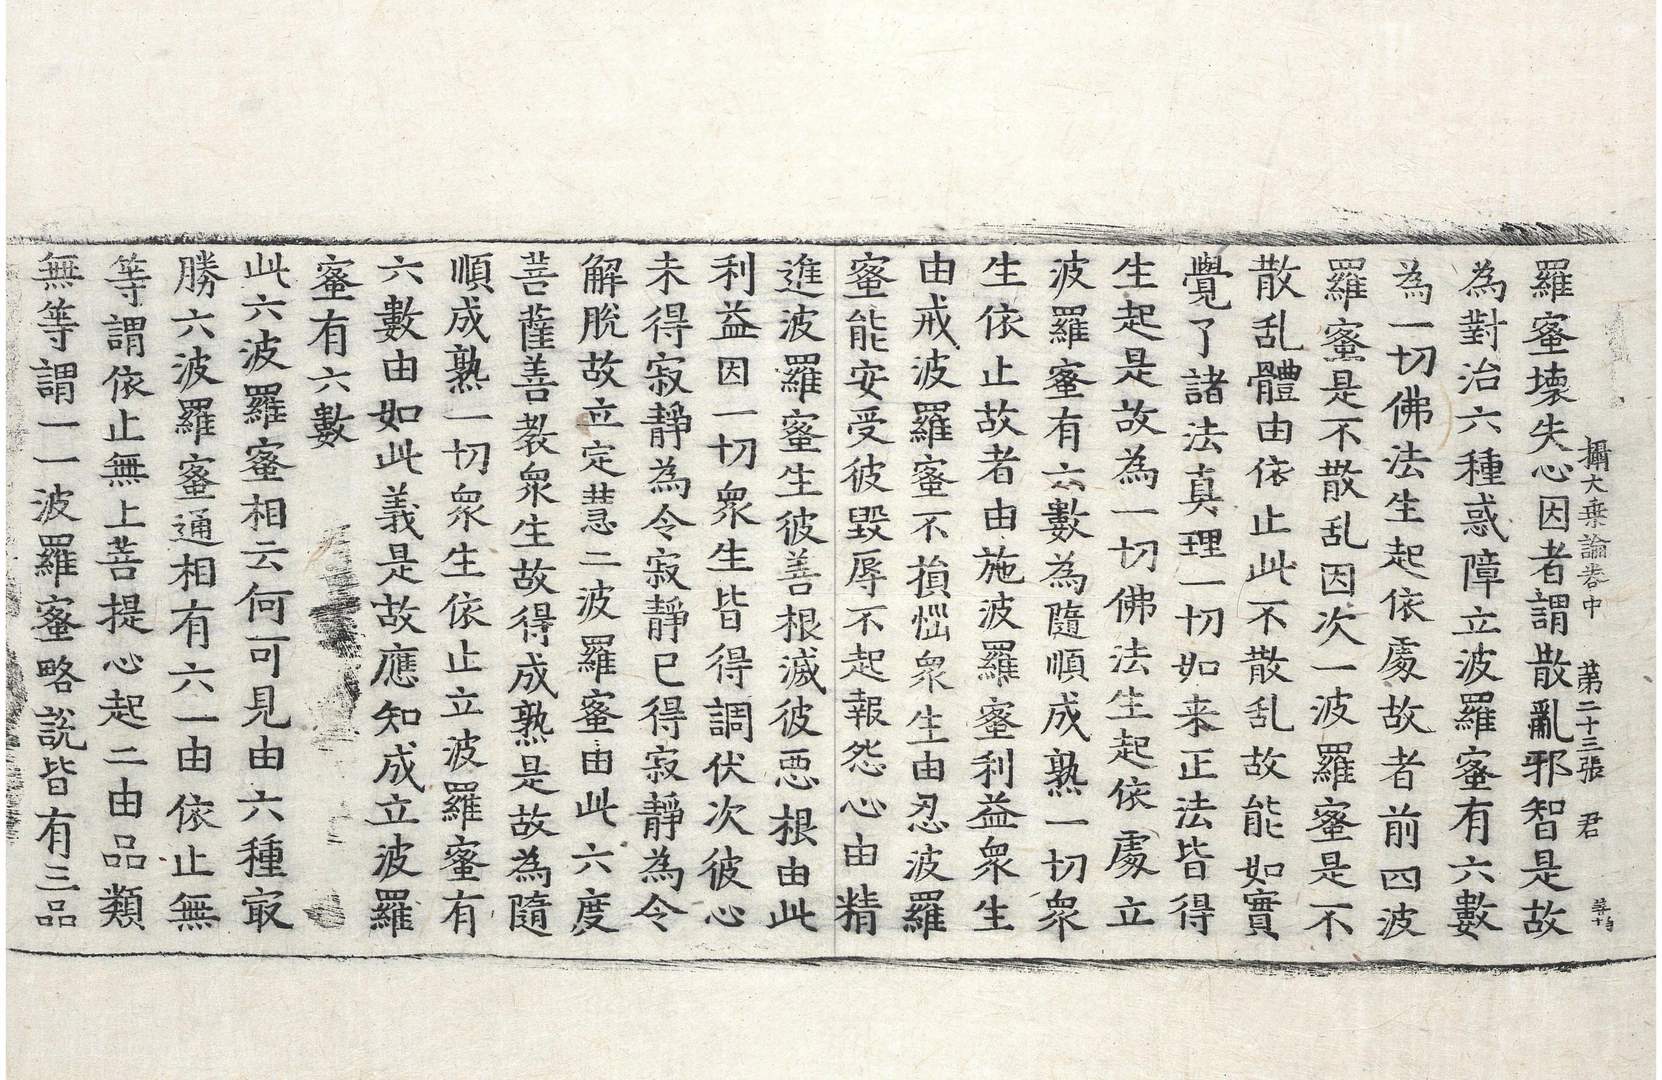 攝大乗論卷中　第二十三張　君
羅蜜壞失心因者謂散亂邪智是故
為對治六種惑障立波羅蜜有六數
為一切佛法生起依處故者前四波
羅蜜是不散乱因次一波羅蜜是不
散乱體由依止此不散乱故能如實
覺了諸法真理一切如来正法皆得
生起是故為一切佛法生起依處立
波羅蜜有六數為隨順成熟一切衆
生依止故者由施波羅蜜利益衆生
由戒波羅蜜不損惱衆生由忍波羅
蜜能安受彼毀辱不起報怨心由精
進波羅蜜生彼善根滅彼惡根由此
利益因一切衆生皆得調伏次彼心
未得寂靜為令寂靜已得寂靜為令
解脫故立定慧二波羅蜜由此六度
菩薩善教衆生故得成熟是故為隨
順成熟一切衆生依止立波羅蜜有
六數由如此義是故應知成立波羅
蜜有六數
此六波羅蜜相云何可見由六種㝡
勝六波羅蜜通相有六一由依止無
等謂依止無上菩提心起二由品類
無等謂一一波羅蜜略說皆有三品